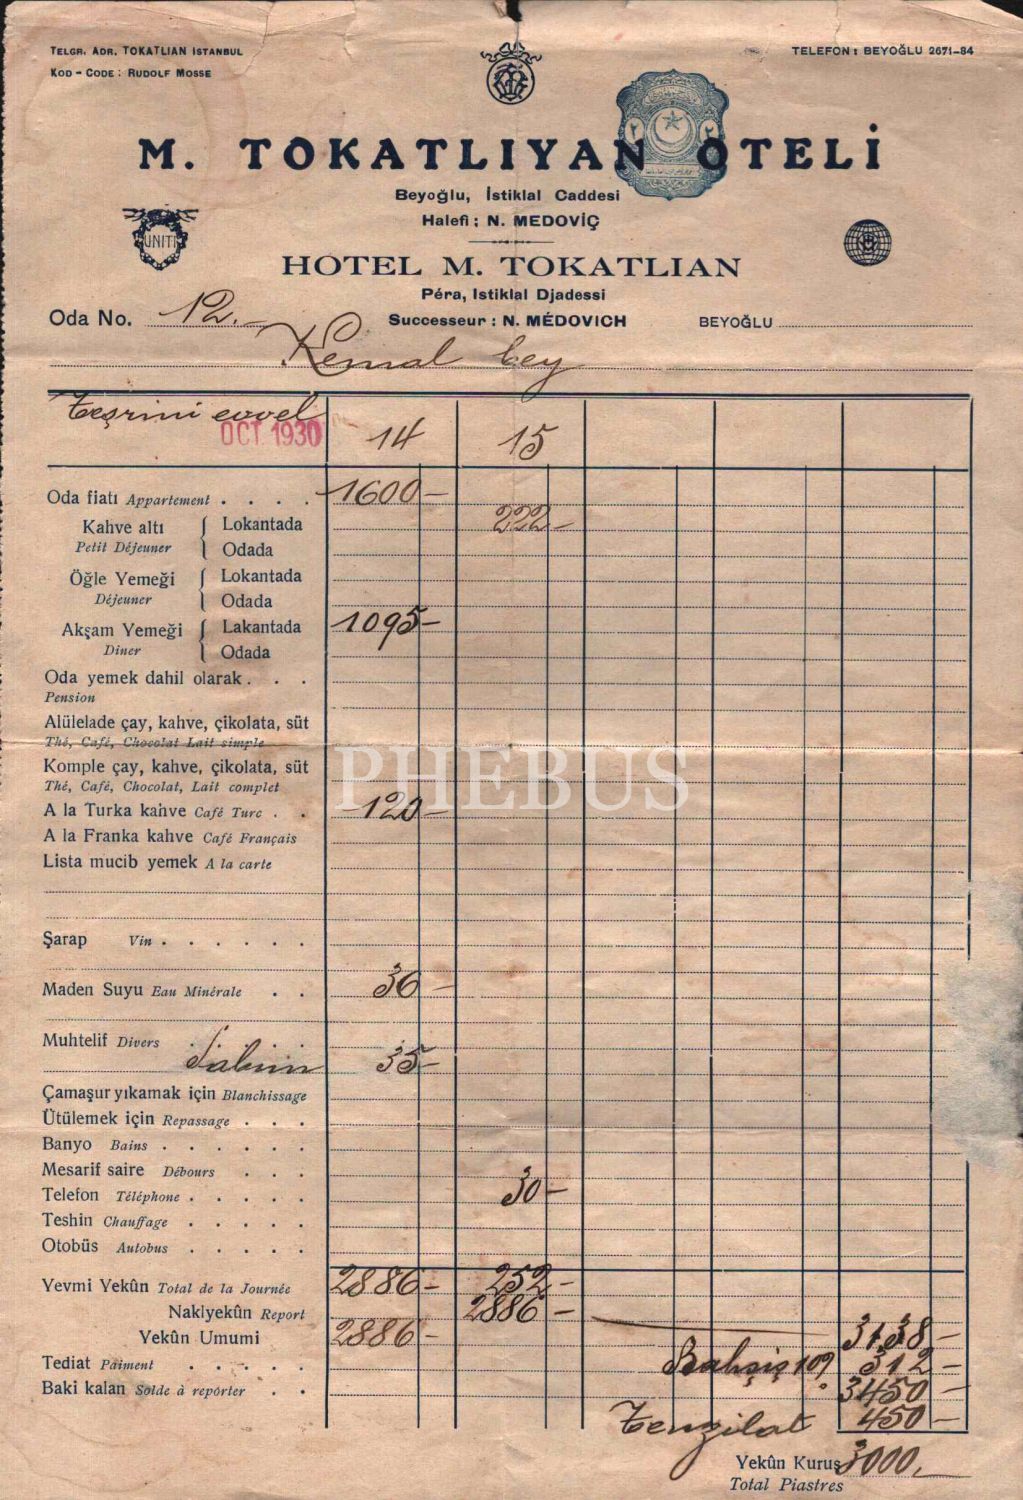 TELGR. ADR. TOKATLIAN ISTANBUL
KOD - CODE : RUDOLF MOSSE
TELEFON : BEYOĞLU 2671-84
M. TOKATLIYAN OTELİ
Beyoğlu, İstiklal Caddesi
Halefi : N. MEDOVİÇ
UNITI
HOTEL M. TOKATLIAN
Péra, Istiklal Djadessi
Oda No. 12.-
Successeur : N. MÉDOVICH
BEYOĞLU
Kemal bey
Teşrini evvel
OCT. 1930
14 15
Oda fiatı Appartement . . . . 1600-
222-
Kahve altı Lokantada
Petit Déjeuner Odada
Öğle Yemeği Lokantada
Déjeuner Odada
Akşam Yemeği Lakantada 1095-
Diner Odada
Oda yemek dahil olarak . . .
Pension
Alülelade çay, kahve, çikolata, süt
Thé, Café, Chocolat Lait simple
PHEBUS
Komple çay, kahve, çikolata, süt
Thé, Café, Chocolat, Lait complet
A la Turka kahve Café Turc . . 120-
A la Franka kahve Café Français
Lista mucib yemek A la carte
Şarap Vin . . . . . .
Maden Suyu Eau Minérale . . 36-
Muhtelif Divers . . . .
35-
Çamaşur yıkamak için Blanchissage
Ütülemek için Repassage . . .
Banyo Bains . . . . . .
Mesarif saire Débours . . .
Telefon Téléphone . . . . . 30-
Teshin Chauffage . . . . .
Otobüs Autobus . . . . .
Yevmi Yekûn Total de la Journée 2886- 252-
Naklyekûn Report 2886-
Yekûn Umumi 2886- 3138-
Tediat Paiment . . . . . Bahşiş 10% 312-
Baki kalan Solde à reporter . . 3450-
Tenzilat 450-
Yekûn Kuruş 3000,-
Total Piastres